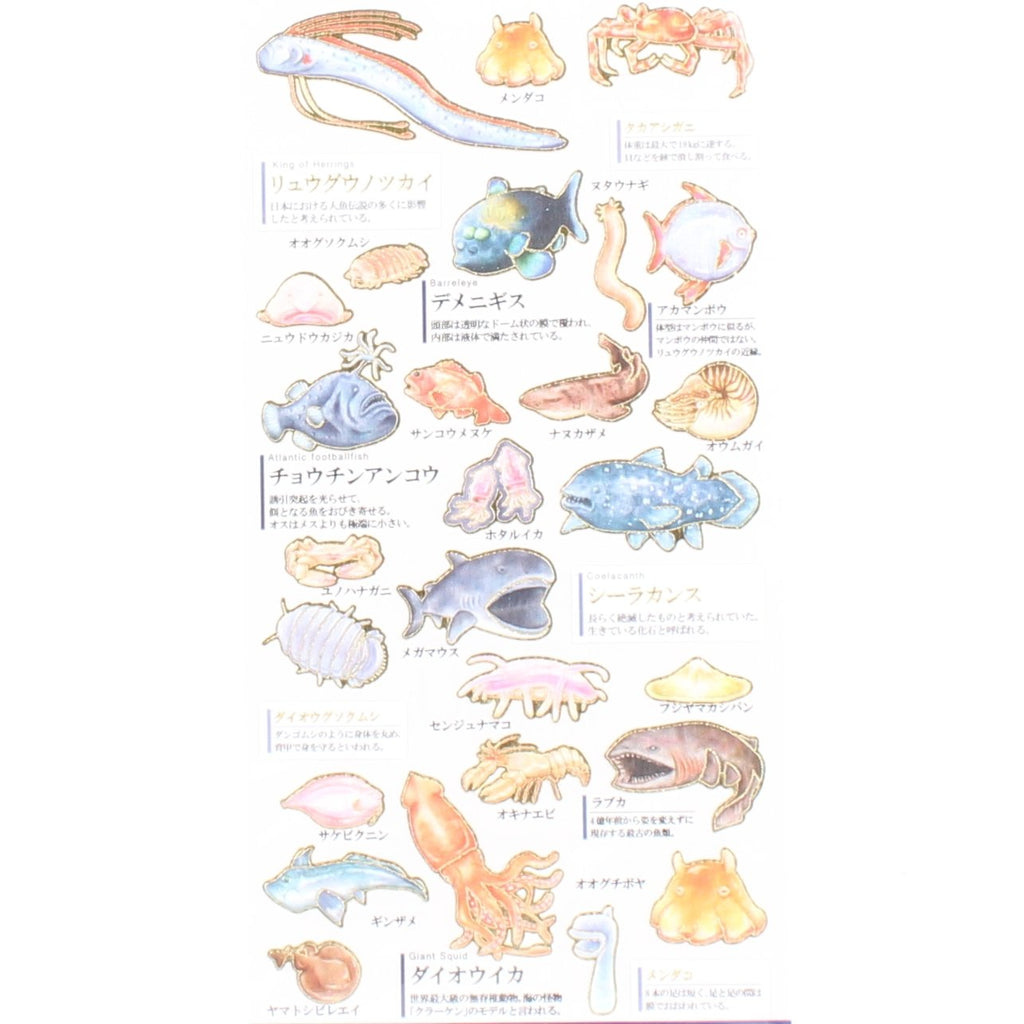 メンダコ
タカアシガニ
体重は最大で19kgに達する。
貝などを鋏で潰し割って食べる。
King of Herrings
リュウグウノツカイ
日本における人魚伝説の多くに影響
したと考えられている。
ヌタウナギ
オオグソクムシ
Barreleye
デメニギス
頭部は透明なドーム状の膜で覆われ、
内部は液体で満たされている。
アカマンボウ
体型はマンボウに似るが、
マンボウの仲間ではない。
リュウグウノツカイの近縁。
ニュウドウカジカ
サンコウメヌケ
ナヌカザメ
オウムガイ
Atlantic footballfish
チョウチンアンコウ
誘引突起を光らせて、
餌となる魚をおびき寄せる。
オスはメスよりも極端に小さい。
ホタルイカ
ユノハナガニ
Coelacanth
シーラカンス
長らく絶滅したものと考えられていた。
生きている化石と呼ばれる。
メガマウス
センジュナマコ
フジヤマカシパン
ダイオウグソクムシ
ダンゴムシのように身体を丸め、
背甲で身を守るといわれる。
オキナエビ
ラブカ
4億年前から姿を変えずに
現存する最古の魚類。
サケビクニン
オオグチボヤ
ギンザメ
Giant Squid
ダイオウイカ
世界最大級の無脊椎動物。海の怪物
「クラーケン」のモデルと言われる。
メンダコ
8本の足は短く、足と足の間は
膜でおおわれている。
ヤマトシビレエイ